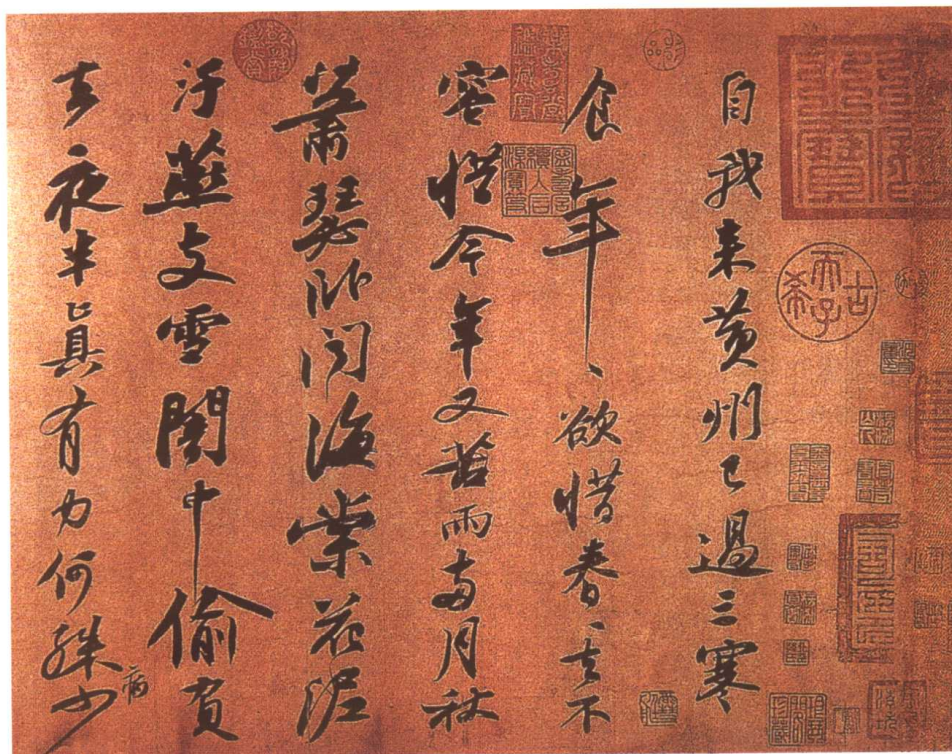 自我来黄州已過三寒
食年、欲惜春、去不
容惜今年又苦雨兩月秋
蕭瑟卧聞海棠花泥
汙燕支雪闇中偷負
去夜半真有力何殊少
病
古希天子